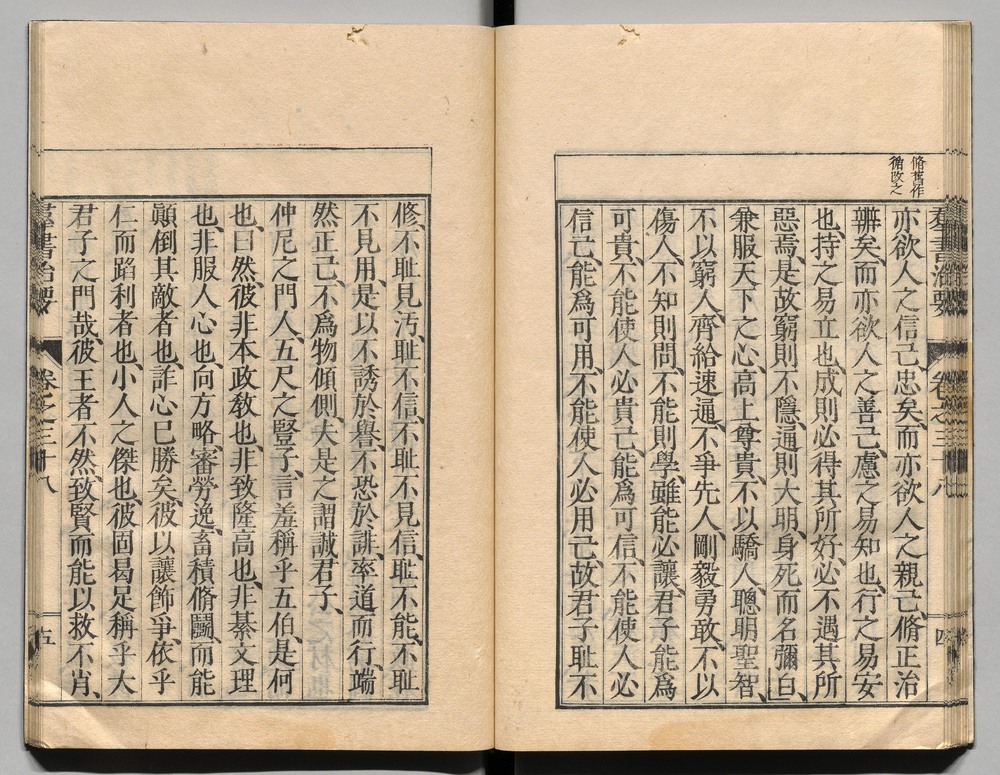 脩舊作
循改之
亦欲人之信己忠矣、而亦欲人之親己、脩正治
辨矣、而亦欲人之善己、慮之易知也、行之易安
也、持之易立也、成則必得其所好、必不遇其所
惡焉、是故窮則不隱、通則大明、身死而名彌白、
兼服天下之心、高上尊貴、不以驕人、聰明聖智、
不以窮人、齊給速通、不爭先人、剛毅勇敢、不以
傷人、不知則問、不能則學、雖能必讓、君子能爲
可貴、不能使人必貴己、能爲可信、不能使人必
信己、能爲可用、不能使人必用己、故君子耻不
群書治要 卷之三十八 四
修、不耻見汚、耻不信、不耻不見信、耻不能、不耻
不見用、是以不誘於譽、不恐於誹、率道而行、端
然正己、不爲物傾側、夫是之謂誠君子、
仲尼之門人、五尺之豎子、言羞稱乎五伯、是何
也、曰、然、彼非本政敎也、非致隆高也、非綦文理
也、非服人心也、向方略、審勞逸、畜積脩鬭、而能
顚倒其敵者也、詐心已勝矣、彼以讓飾爭、依乎
仁而蹈利者也、小人之傑也、彼固曷足稱乎大
君子之門哉、彼王者不然、致賢而能以救不肖、
羣書治要 卷之三十八 五